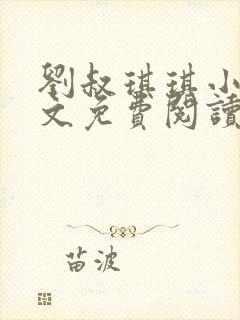 劉叔琪琪小
文免費閱讀
苗波